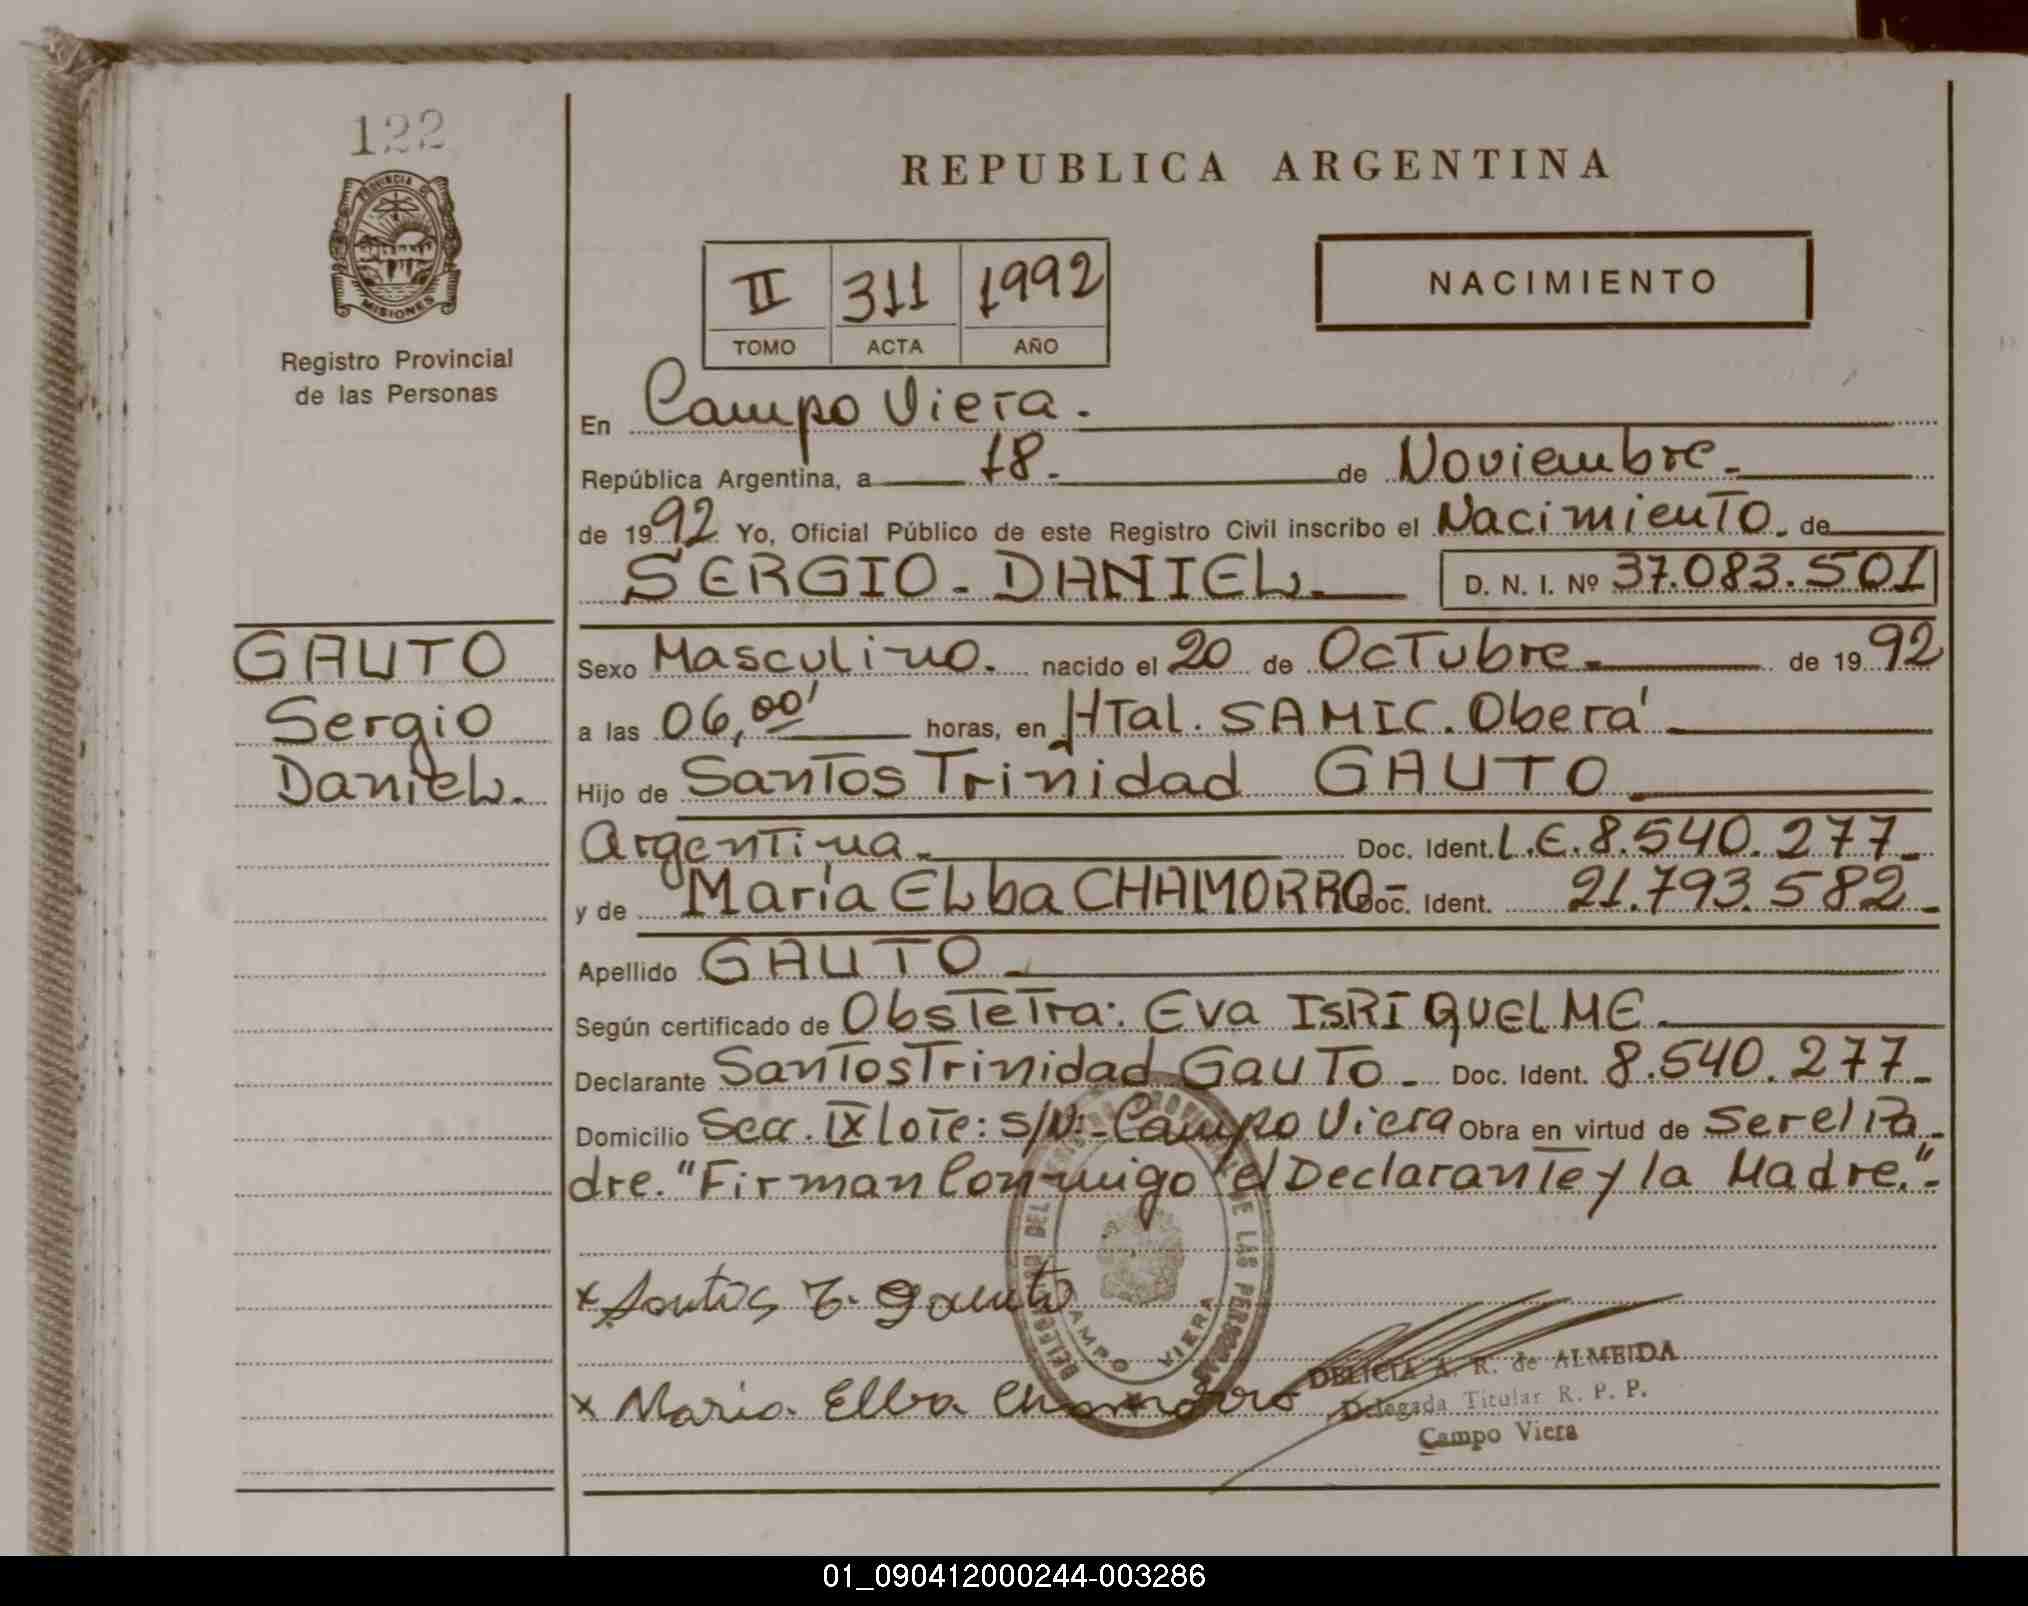 122
PROVINCIA D
MISIONES
Registro Provincial
de las Personas
REPUBLICA ARGENTINA
II 311 1992
TOMO ACTA AÑO
NACIMIENTO
En Campo Viera.
República Argentina, a 18. de Noviembre.
de 1992. Yo, Oficial Público de este Registro Civil inscribo el Nacimiento. de
SERGIO - DANIEL. D. N. I. Nº 37.083.501
GAUTO
Sergio
Daniel.
Sexo Masculino. nacido el 20 de Octubre. de 1992
a las 06,00' horas, en HTal. SAMIC. Oberá
Hijo de Santos Trinidad GAUTO
Argentina. Doc. Ident. L.E. 8.540.277
y de María Elba CHAMORRO Doc. Ident. 21.793.582
Apellido GAUTO
Según certificado de Obstetra: Eva ISRI QUELME
Declarante Santos Trinidad Gauto - Doc. Ident. 8.540.277
Domicilio Secc. IX Lote: S/N:- Campo Viera Obra en virtud de Ser el Pa-
dre. "Firman Conmigo el Declarante y la Madre."-
x Santos T. Gauto
x Maria Elba Chamorro
CAMPO VIERA
DELICIA A. R. de ALMEIDA
Delegada Titular R. P. P.
Campo Viera
01_090412000244-003286